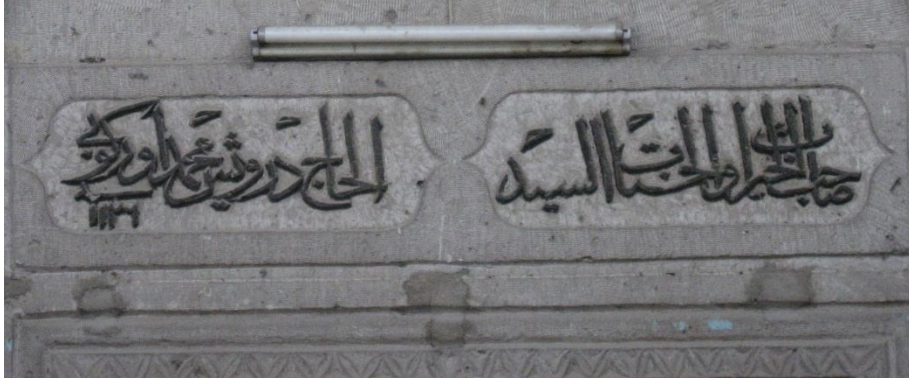 صاحب الخيرات والحسنات السيد
الحاج درويش محمد
سنة ١١٣٦